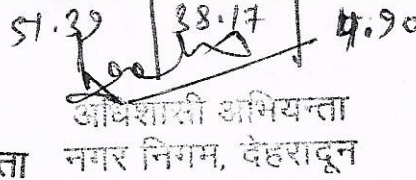 51.39 38.17 4.90
अधिशासी अभियन्ता
ता नगर निगम, देहरादून